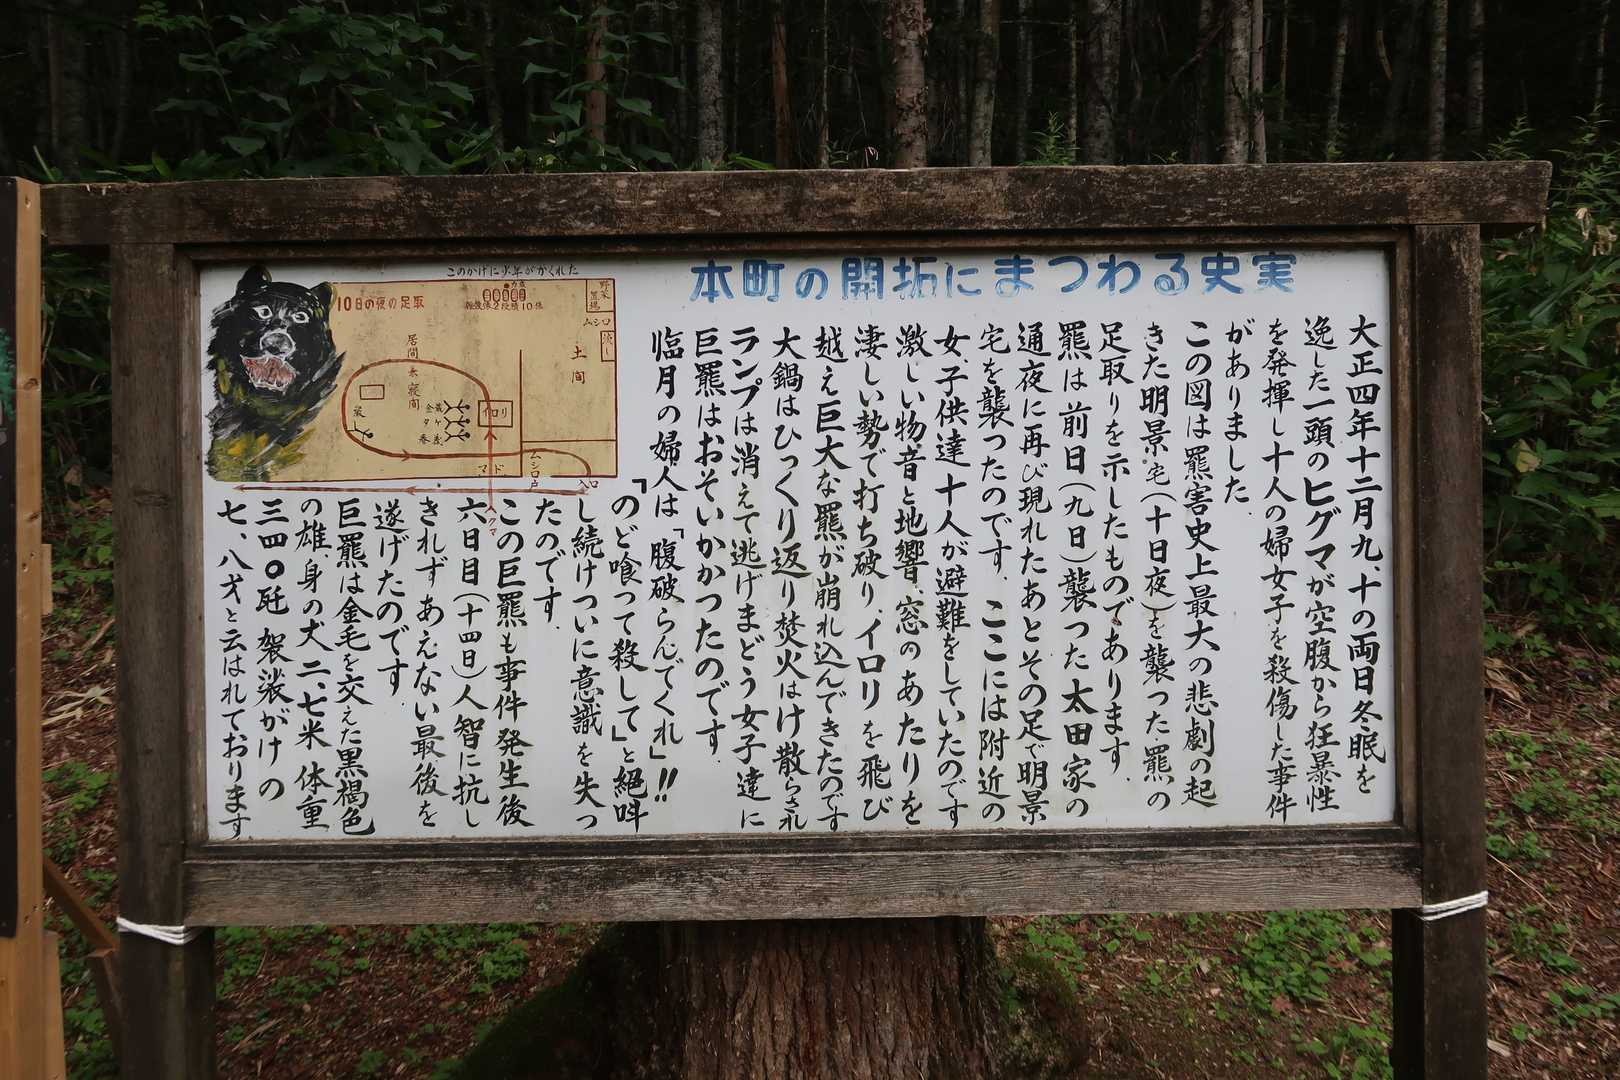 本町の開拓にまつわる史実
大正四年十二月九、十の両日冬眠を
逸した一頭のヒグマが空腹から狂暴性
を発揮し十人の婦女子を殺傷した事件
がありました.
この図は羆害史上最大の悲劇の起
きた明景宅(十日夜)を襲った羆の
足取りを示したものであります.
羆は前日(九日)襲った太田家の
通夜に再び現れたあとその足で明景
宅を襲ったのです. ここには附近の
女子供達十人が避難をしていたのです
激しい物音と地響、窓のあたりを
凄しい勢で打ち破り、イロリを飛び
越え巨大な羆が崩れ込んできたのです
大鍋はひっくり返り焚火はけ散らされ
ランプは消えて逃げまどう女子達に
巨羆はおそいかかったのです.
臨月の婦人は「腹破らんでくれ」!!
「のど喰って殺して」と絶叫
し続けついに意識を失っ
たのです.
この巨羆も事件発生後
六日目(十四日)人智に抗し
きれず あえない最後を
遂げたのです
巨羆は金毛を交えた黒褐色
の雄、身の丈二、七米 体重
三四〇瓩 袈裟がけの
七、八才と云はれております
このかげに少年がかくれた
10日の夜の足取
穀俵2段積10俵
野菜置場
ムシロ
流し
土間
居間兼寝間
イロリ
マド
ムシロ戸
入口
クマ